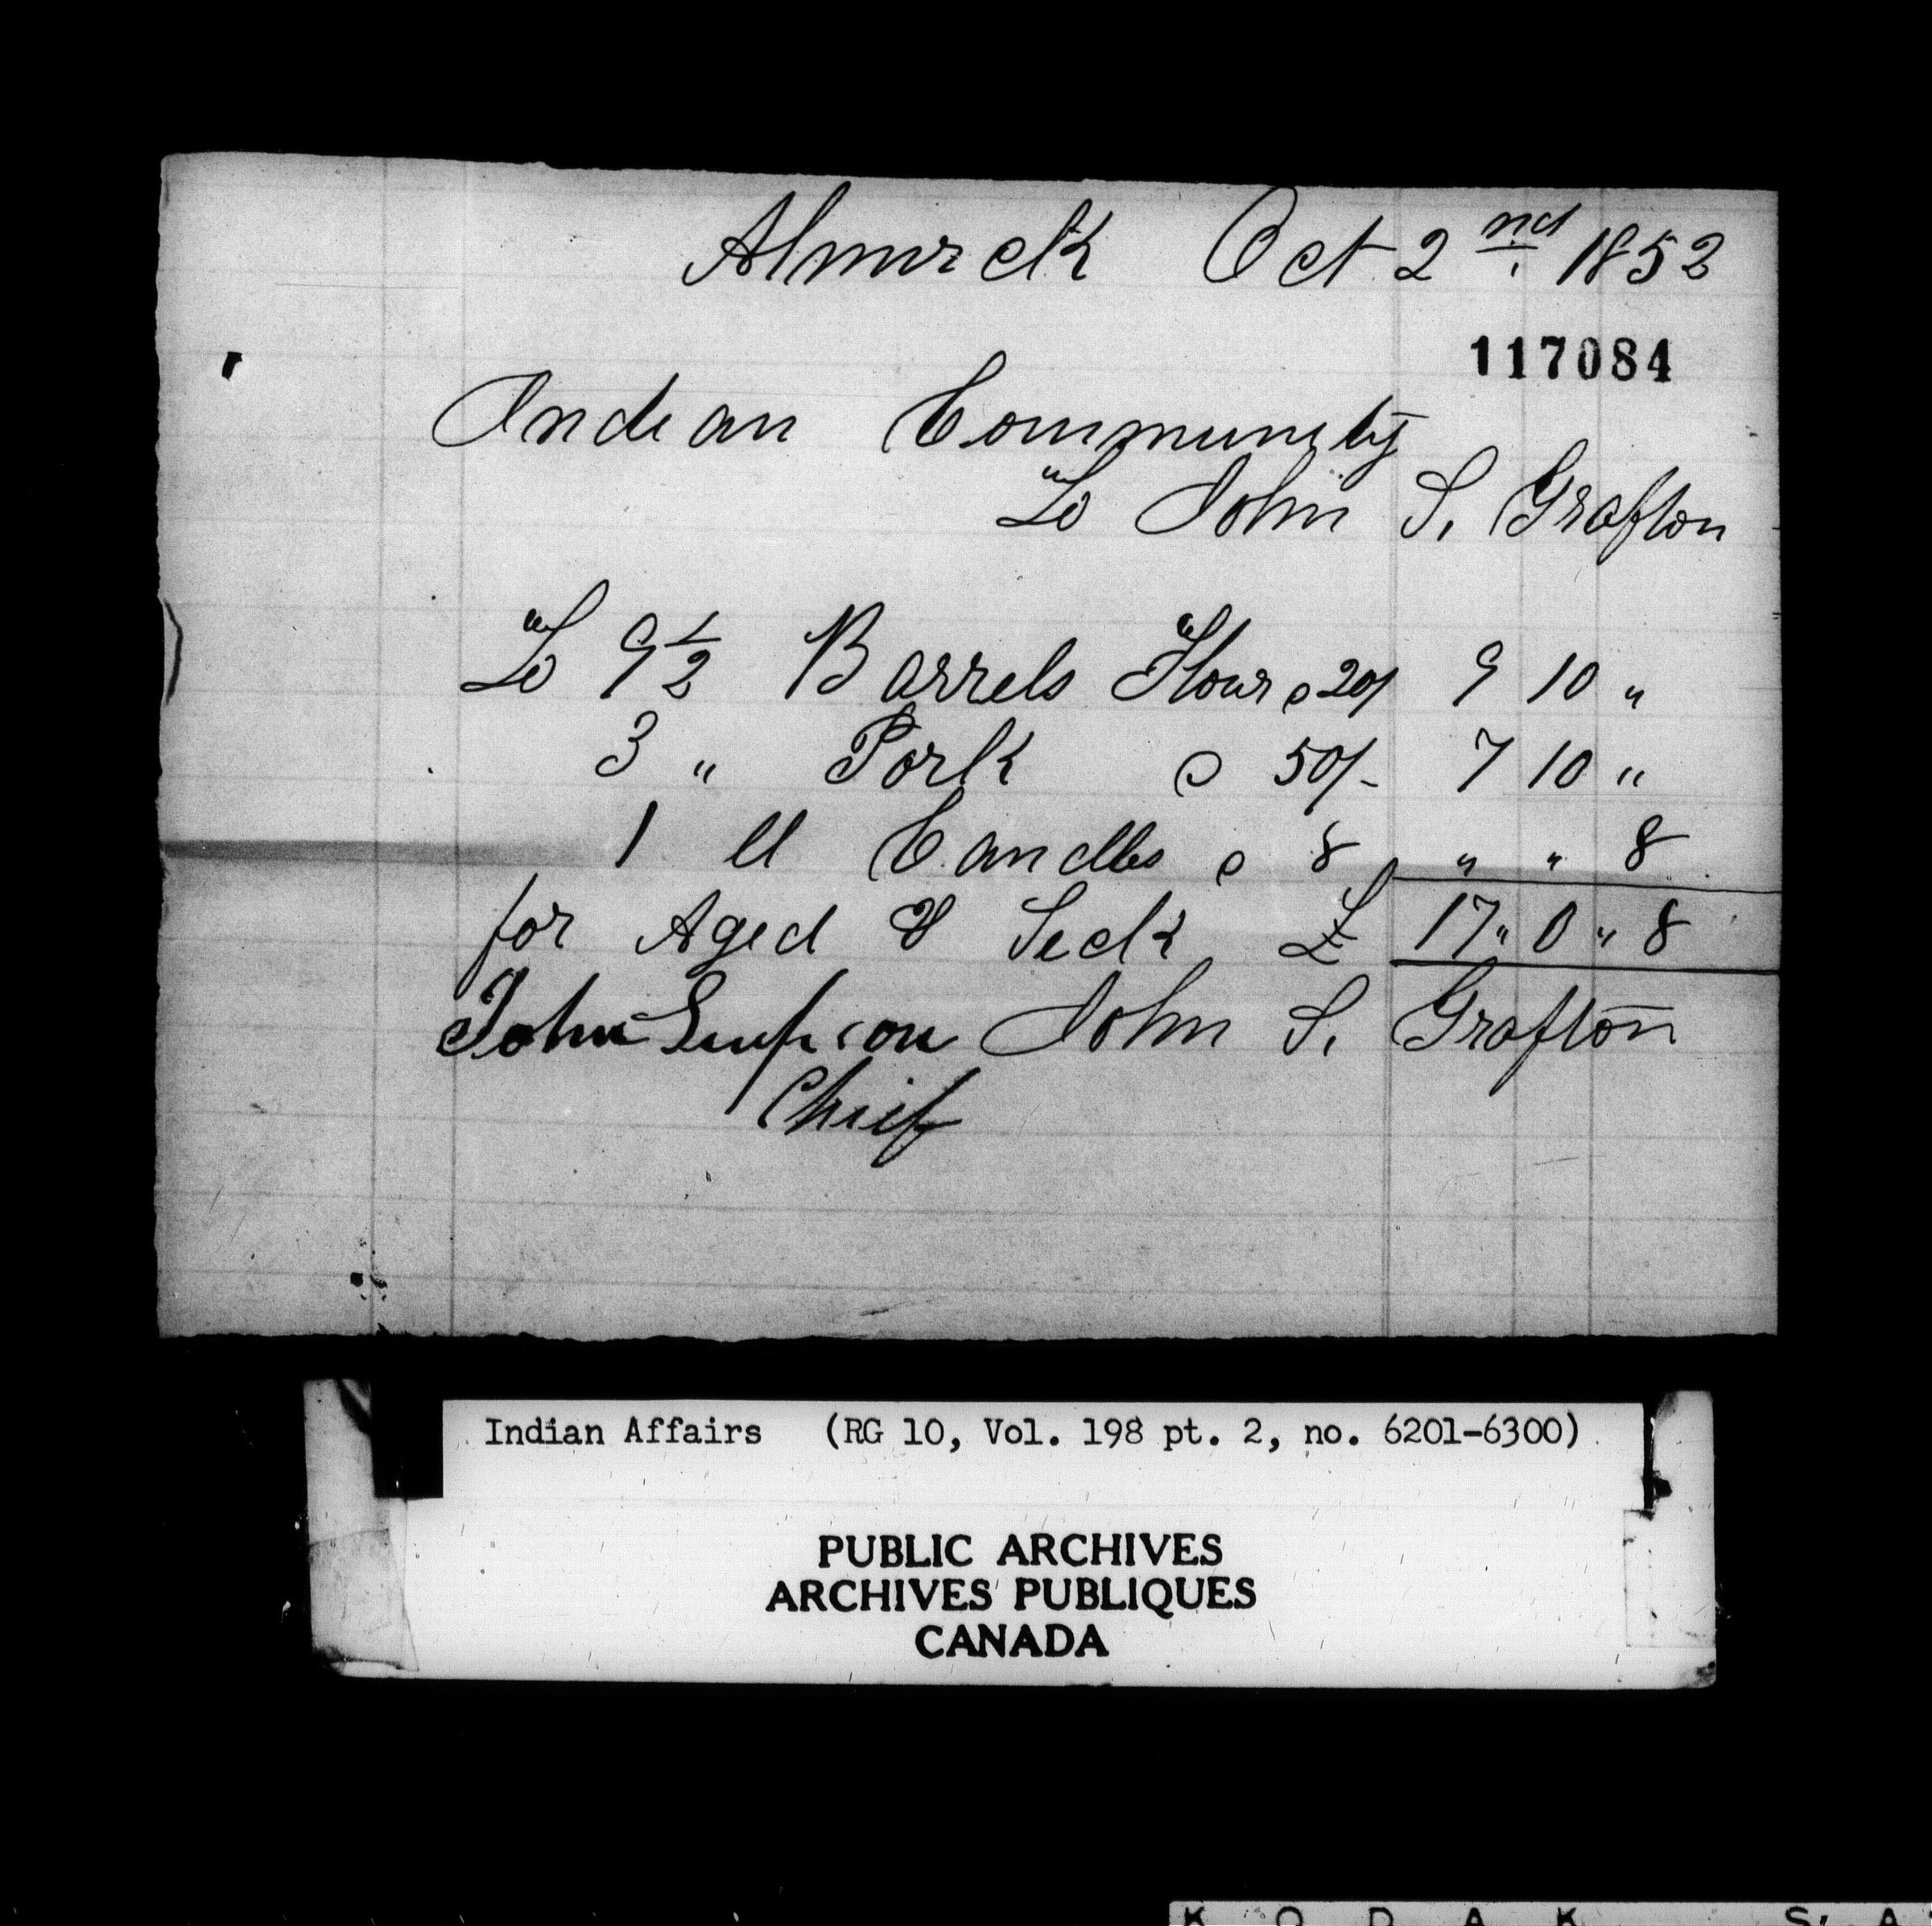 Alnwick Oct 2nd 1852
117084
Indian Community
To John S. Grafton
To 9 1/2 Barrels Flour @ 20/ 9 10 "
3 " Pork @ 50/- 7 10 "
1 lb Candles @ 8 " " 8
for Aged & Sick £ 17 " 0 " 8
John Simpson John S. Grafton
Chief
Indian Affairs (RG 10, Vol. 198 pt. 2, no. 6201-6300)
PUBLIC ARCHIVES
ARCHIVES PUBLIQUES
CANADA
K O D A K S. A